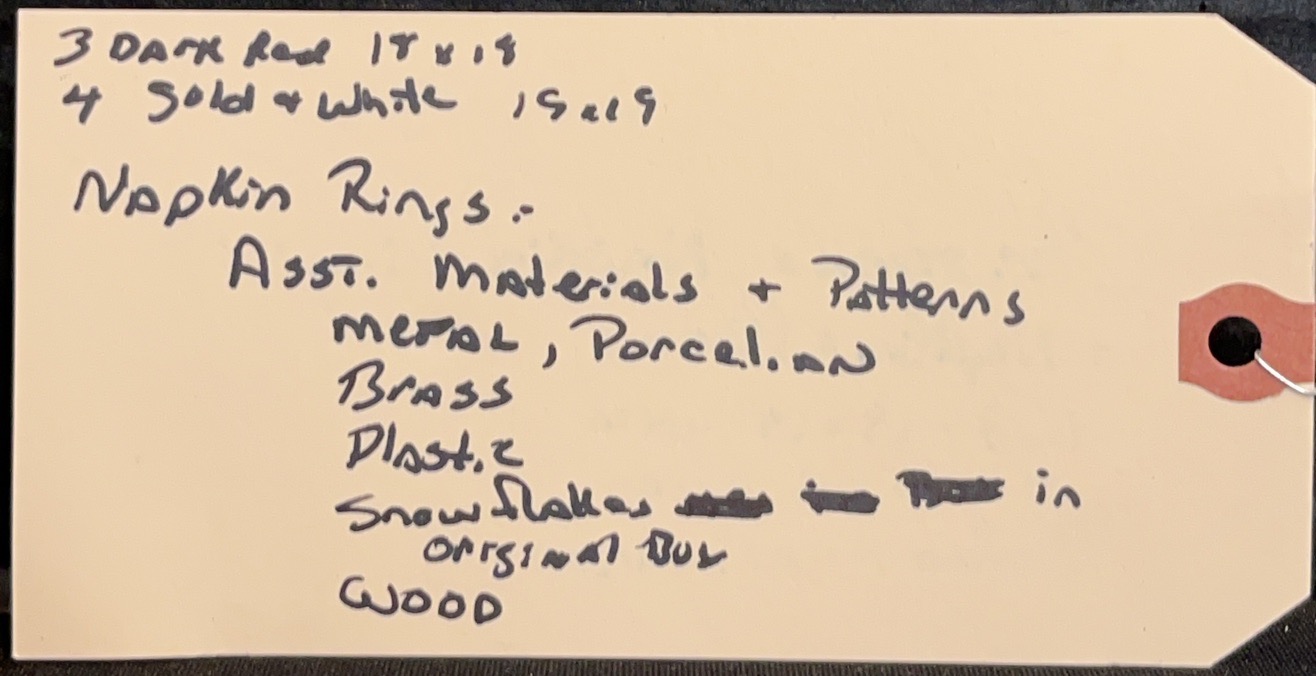 3 Dark Red 18 x 18
4 Gold + White 19 x 19
Napkin Rings :-
Asst. Materials + Patterns
Metal, Porcelian
Brass
Plastic
Snowflakes in
original Box
Wood